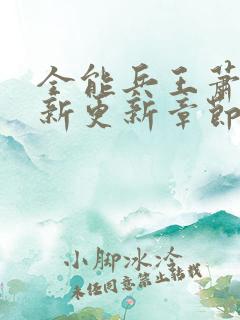 全能兵王萧
新更新章节
小脚冰冷
未经同意禁止转载